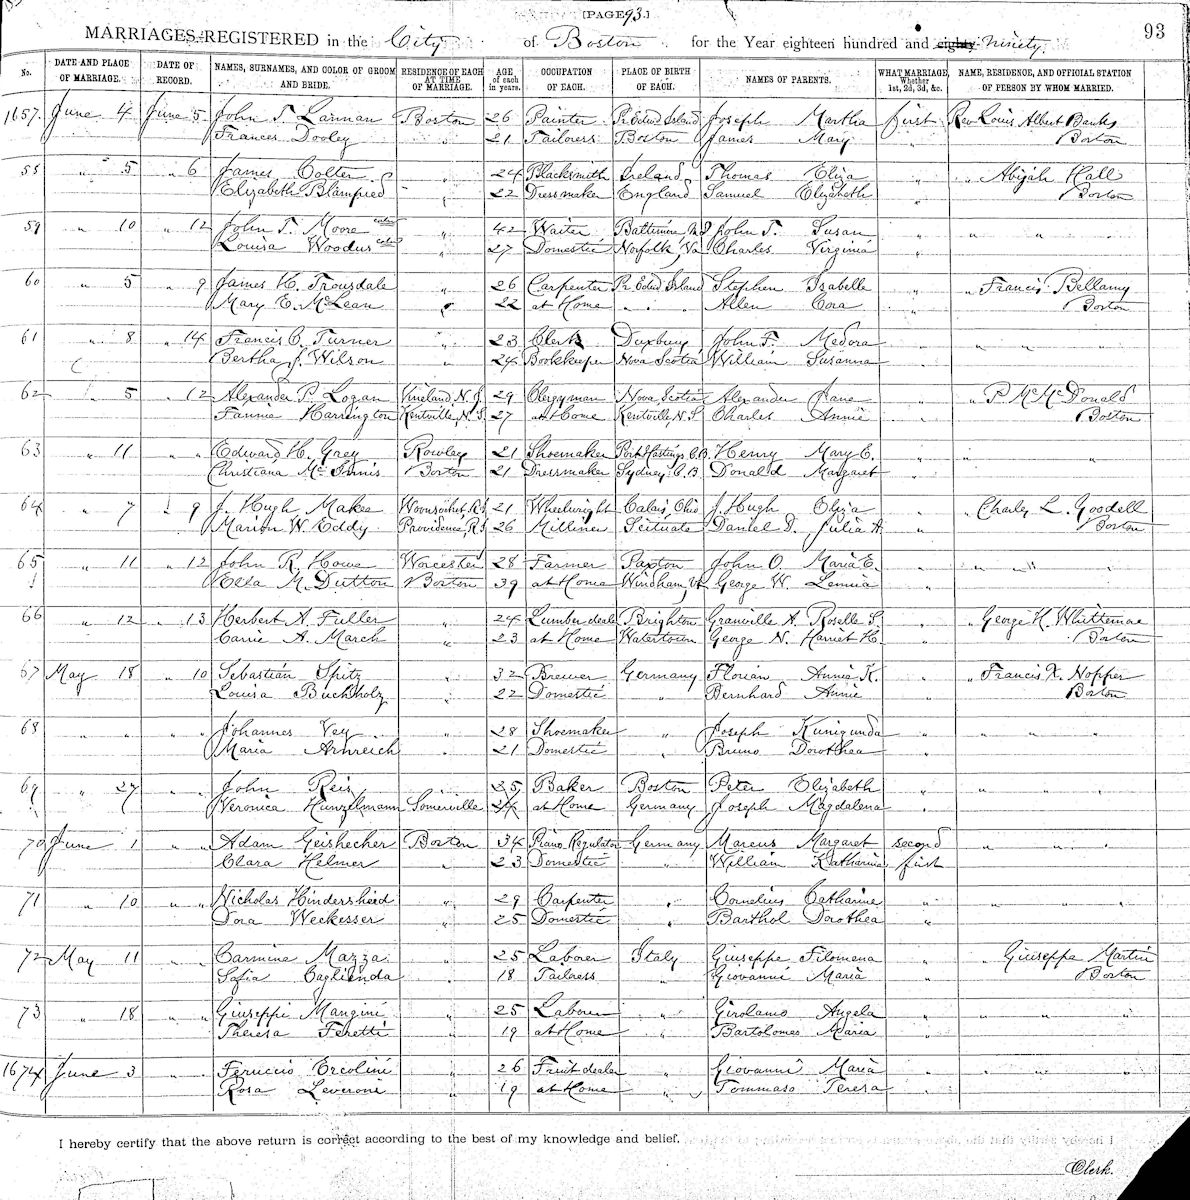 [PAGE 93.]
93
MARRIAGES REGISTERED in the City of Boston for the Year eighteen hundred and eighty ninety
No. DATE AND PLACE OF MARRIAGE. DATE OF RECORD. NAMES, SURNAMES, AND COLOR OF GROOM AND BRIDE. RESIDENCE OF EACH AT TIME OF MARRIAGE. AGE of each in years. OCCUPATION OF EACH. PLACE OF BIRTH OF EACH. NAMES OF PARENTS. WHAT MARRIAGE, Whether 1st, 2d, 3d, &c. NAME, RESIDENCE, AND OFFICIAL STATION OF PERSON BY WHOM MARRIED.
1657 June 4 June 5 John T. Larman Boston 26 Painter Pr. Edwd Island Joseph Martha first Rev Louis Albert Banks
Frances Dooley " 21 Tailoress Boston James Mary " Boston
58 " 5 " 6 James Colter " 24 Blacksmith Ireland Thomas Eliza " " Abijah Hall
Elizabeth Blampied " 22 Dressmaker England Samuel Elizabeth " Boston
59 " 10 " 12 John T. Moore " 42 Waiter Baltimore Md John T. Susan " " " "
Louisa Woodus " 27 Domestic Norfolk, Va Charles Virginia "
60 " 5 " 9 James H. Trousdale " 26 Carpenter Pr. Edwd Island Stephen Isabelle " " Francis Bellamy
Mary E. McLean " 22 at Home " " " Allen Cora " Boston
61 " 8 " 14 Francis C. Turner " 23 Clerk Duxbury John F. Medora " " " "
Bertha J. Wilson " 24 Bookkeeper Nova Scotia William Susanna "
62 " 5 " 12 Alexander P. Logan Vineland N.J. 29 Clergyman Nova Scotia Alexander Jane " " P. Mc McDonald
Fannie Harrington Kentville, N.S. 27 at Home Kentville, N.S. Charles Annie " Boston
63 " 11 " " Edward H. Grey Rowley 21 Shoemaker Port Hastings C.B. Henry Mary E. " " " "
Christiana McInnis Boston 21 Dressmaker Sydney, C.B. Donald Margaret "
64 " 7 " 9 J. Hugh Makee Woonsocket, R.I. 21 Wheelwright Calais, Ohio J. Hugh Eliza " " Charles L. Goodell
Marion W. Eddy Providence, R.I. 26 Milliner Scituate Daniel D. Julia A. " Boston
65 " 11 " 12 John R. Howe Worcester 28 Farmer Paxton John O. Maria E. " " " "
Ella M. Dutton Boston 39 at Home Windham, Vt George W. "
66 " 12 " 13 Herbert A. Fuller " 24 Lumber dealer Brighton Granville A. Roselle S. " " George H. Whittemore
Carrie A. March " 23 at Home Watertown George N. Harriet H. " Boston
67 May 18 " 10 Sebastian Spitz " 32 Brewer Germany Florian Annie K. " " Francis X. Nopper
Louisa Buchholz " 22 Domestic " Bernhard Annie " Boston
68 " " " " Johannes Vey " 28 Shoemaker " Joseph Kunigunda " " " "
Maria Arnreich " 21 Domestic " Bruno Dorothea "
69 " 27 " " John Reis " 25 Baker Boston Peter Elizabeth " " " "
Veronica Hunzelmann Somerville 24 at Home Germany Joseph Magdalena "
70 June 1 " " Adam Geishecker Boston 34 Piano Regulator Germany Marcus Margaret second " " "
Clara Helmer " 23 Domestic " William Katharina first
71 " 10 " " Nicholas Hindersheid " 29 Carpenter " Cornelius Catharine " " " "
Dora Weckesser " 25 Domestic " Barthol Dorothea "
72 May 11 " " Carmine Mazza " 25 Laborer Italy Giuseppe Filomena " " Giuseppe Martini
Sofia Caglienda " 18 Tailoress " Giovanni Maria " Boston
73 " 18 " " Giuseppi Mangini " 25 Laborer " Girolamo Angela " " " "
Theresa Feretti " 19 at Home " Bartolomeo Maria "
1674 June 3 " " Feruccio Ercolini " 26 Fruit dealer " Giovanni Maria " " " "
Rosa Leveroni " 19 at Home " Tommaso Teresa "
I hereby certify that the above return is correct according to the best of my knowledge and belief.
Clerk.